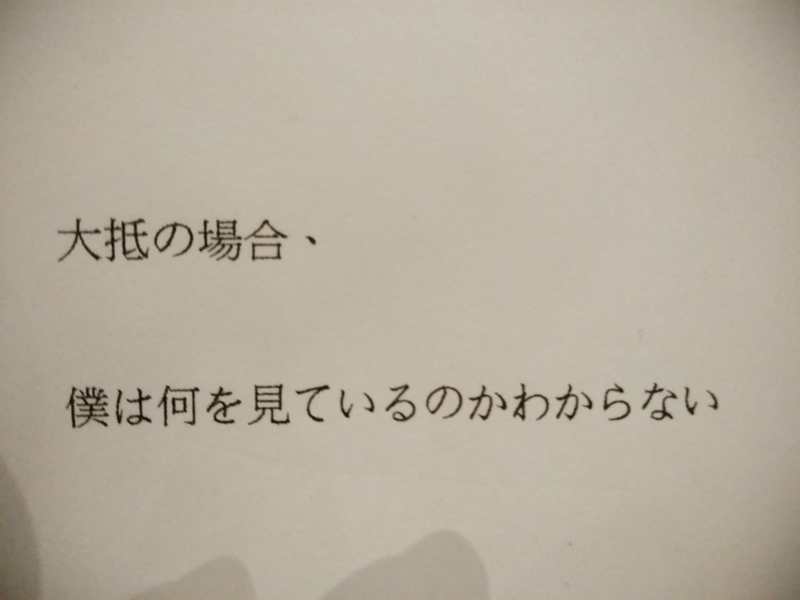 大抵の場合、
僕は何を見ているのかわからない